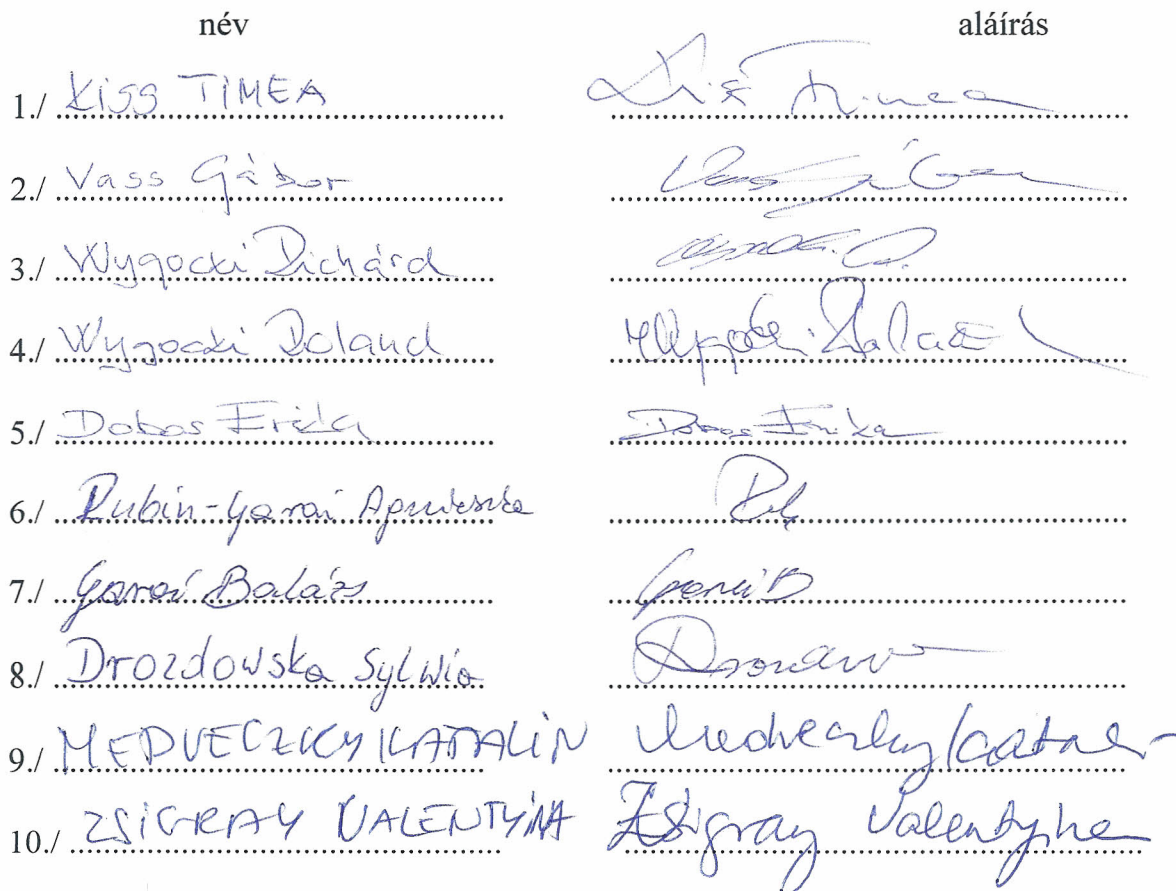 név aláírás
1./ Kiss TIMEA Kiss Timea
2./ Vass Gábor Vass Gábor
3./ Wygocki Richárd
4./ Wygocki Roland Wygocki Roland
5./ Dobos Erika Dobos Erika
6./ Rubin-Garai Agnieszka
7./ Garai Balázs Garai B
8./ Drozdowska Sylwia
9./ MEDVECZKY KATALIN Medveczky Katalin
10./ ZSIGRAY VALENTYINA Zsigray Valentyina